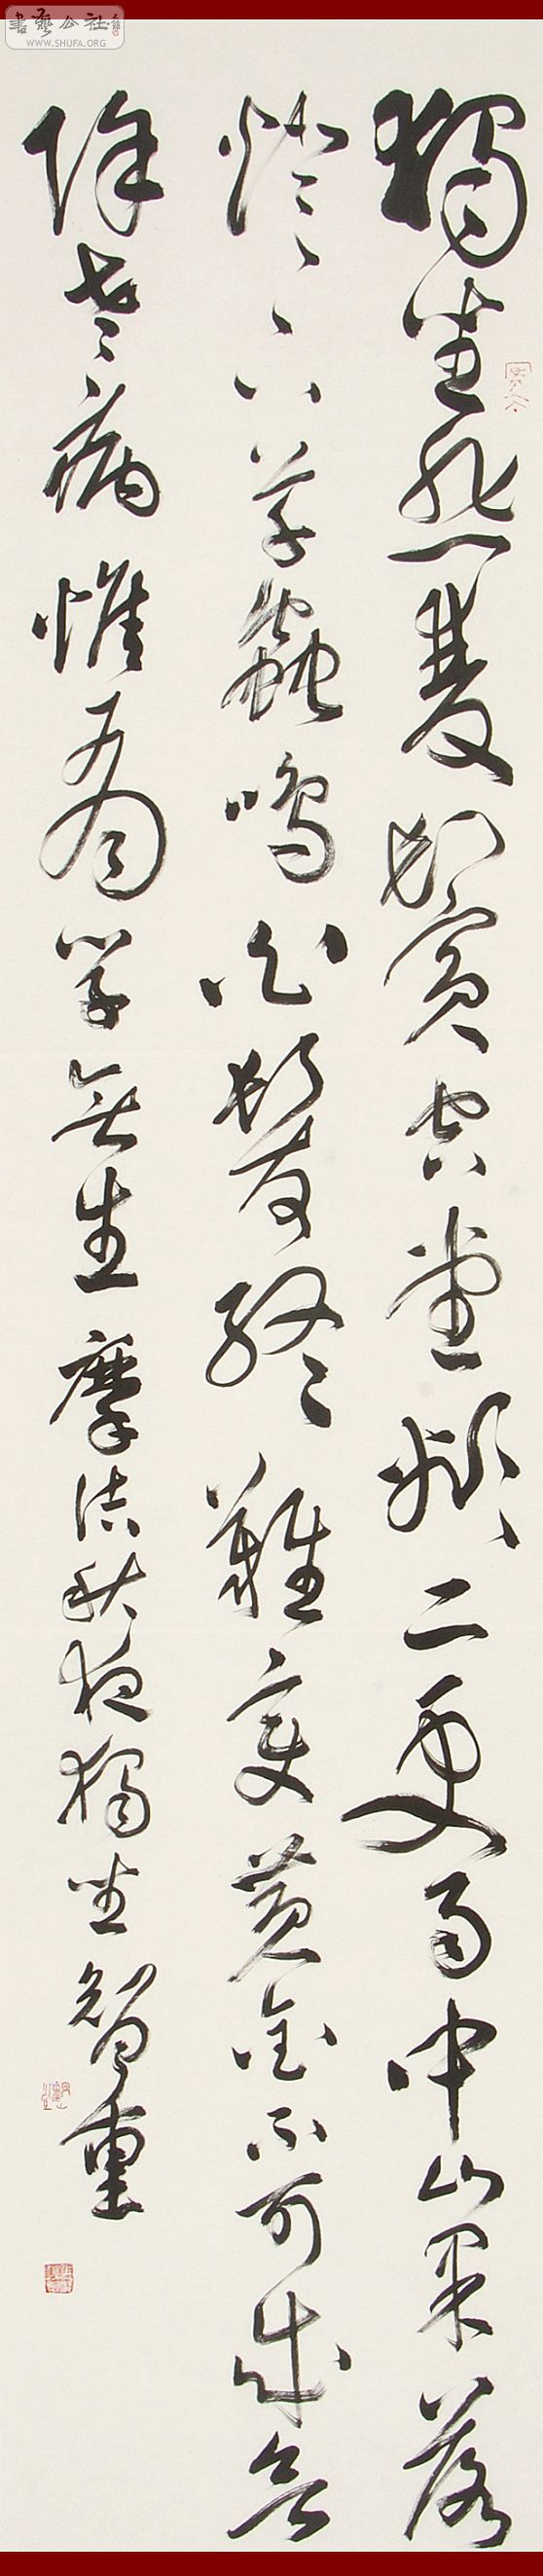 書藝公社
WWW.SHUFA.ORG
獨坐悲雙鬢空堂欲二更雨中山果落
燈下草蟲鳴白髮終難變黃金不可成
除老病惟有學無生摩詰秋夜獨坐智重